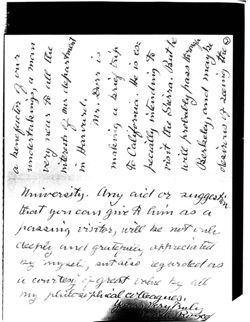 a benefactor of our
undertakings, a man
very near to all the
interests of our department
in Harvard.
Mr. Dorr is
making a brief trip
to California. He is es-
pecially intending to
visit the Sierra. But he
will probably pass through
Berkeley, and may be
desirous of seeing the
University. Any aid or suggestion
that you can give to him as a
passing visitor, will be not only
deeply and gratefully appreciated
by myself, but also regarded as
a courtesy of great value by all
my philosophical colleagues.
Yours Very Truly,